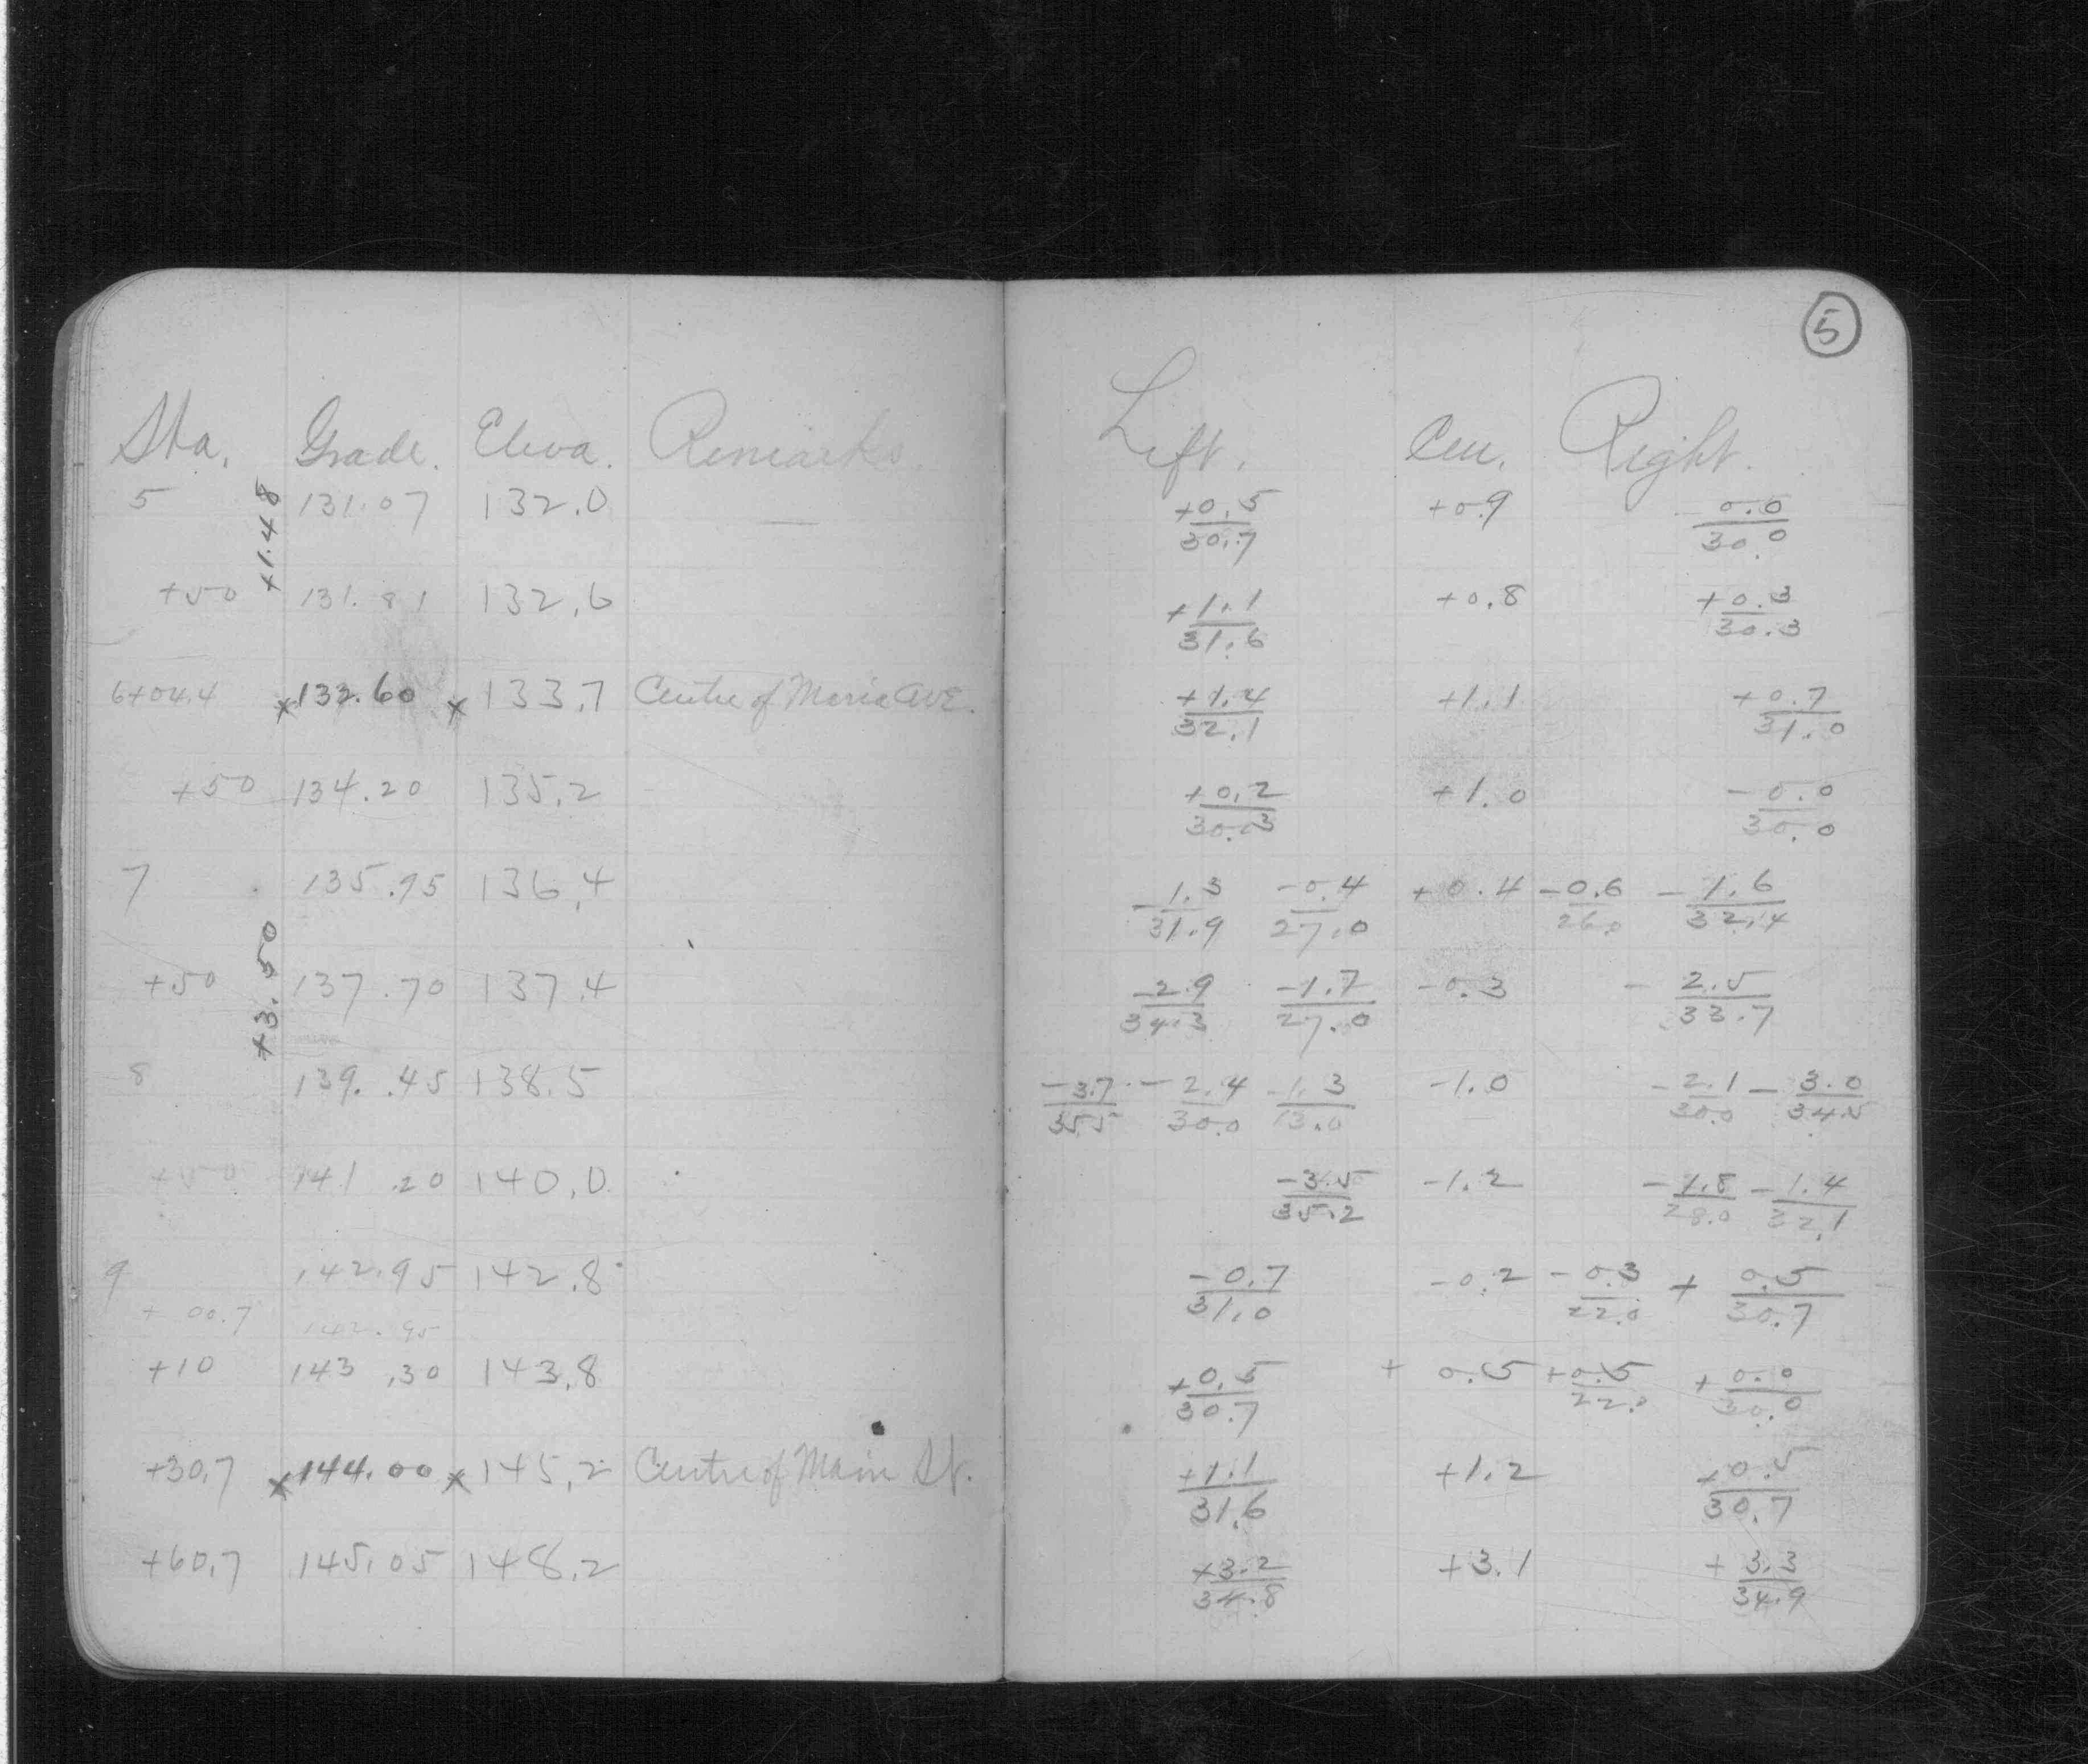 5
Sta. Grade. Eleva. Remarks. Left. Cen. Right.
5 +1.48 131.07 132.0 — +0.5/30.7 +0.9 -0.0/30.0
+50 131.81 132.6 +1.1/31.6 +0.8 +0.3/30.3
6+04.4 x132.60 x133.7 Centre of Maria Ave. +1.4/32.1 +1.1 +0.7/31.0
+50 134.20 135.2 +0.2/30.3 +1.0 -0.0/30.0
7 135.95 136.4 -1.3/31.9 -0.4/27.0 +0.4 -0.6/26.0 -1.6/32.4
+50 +3.50 137.70 137.4 -2.9/34.3 -1.7/27.0 -0.3 -2.5/33.7
8 139.45 138.5 -3.7/35.5 -2.4/30.0 -1.3/13.0 -1.0 -2.1/30.0 -3.0/34.5
+50 141.20 140.0 -3.5/35.2 -1.2 -1.8/28.0 -1.4/32.1
9 142.95 142.8 -0.7/31.0 -0.2 -0.3/22.0 +0.5/30.7
+00.7 142.95
+10 143.30 143.8 +0.5/30.7 +0.5 +0.5/22.0 +0.0/30.0
+30.7 x144.00 x145.2 Centre of Main St. +1.1/31.6 +1.2 +0.5/30.7
+60.7 145.05 148.2 +3.2/34.8 +3.1 +3.3/34.9